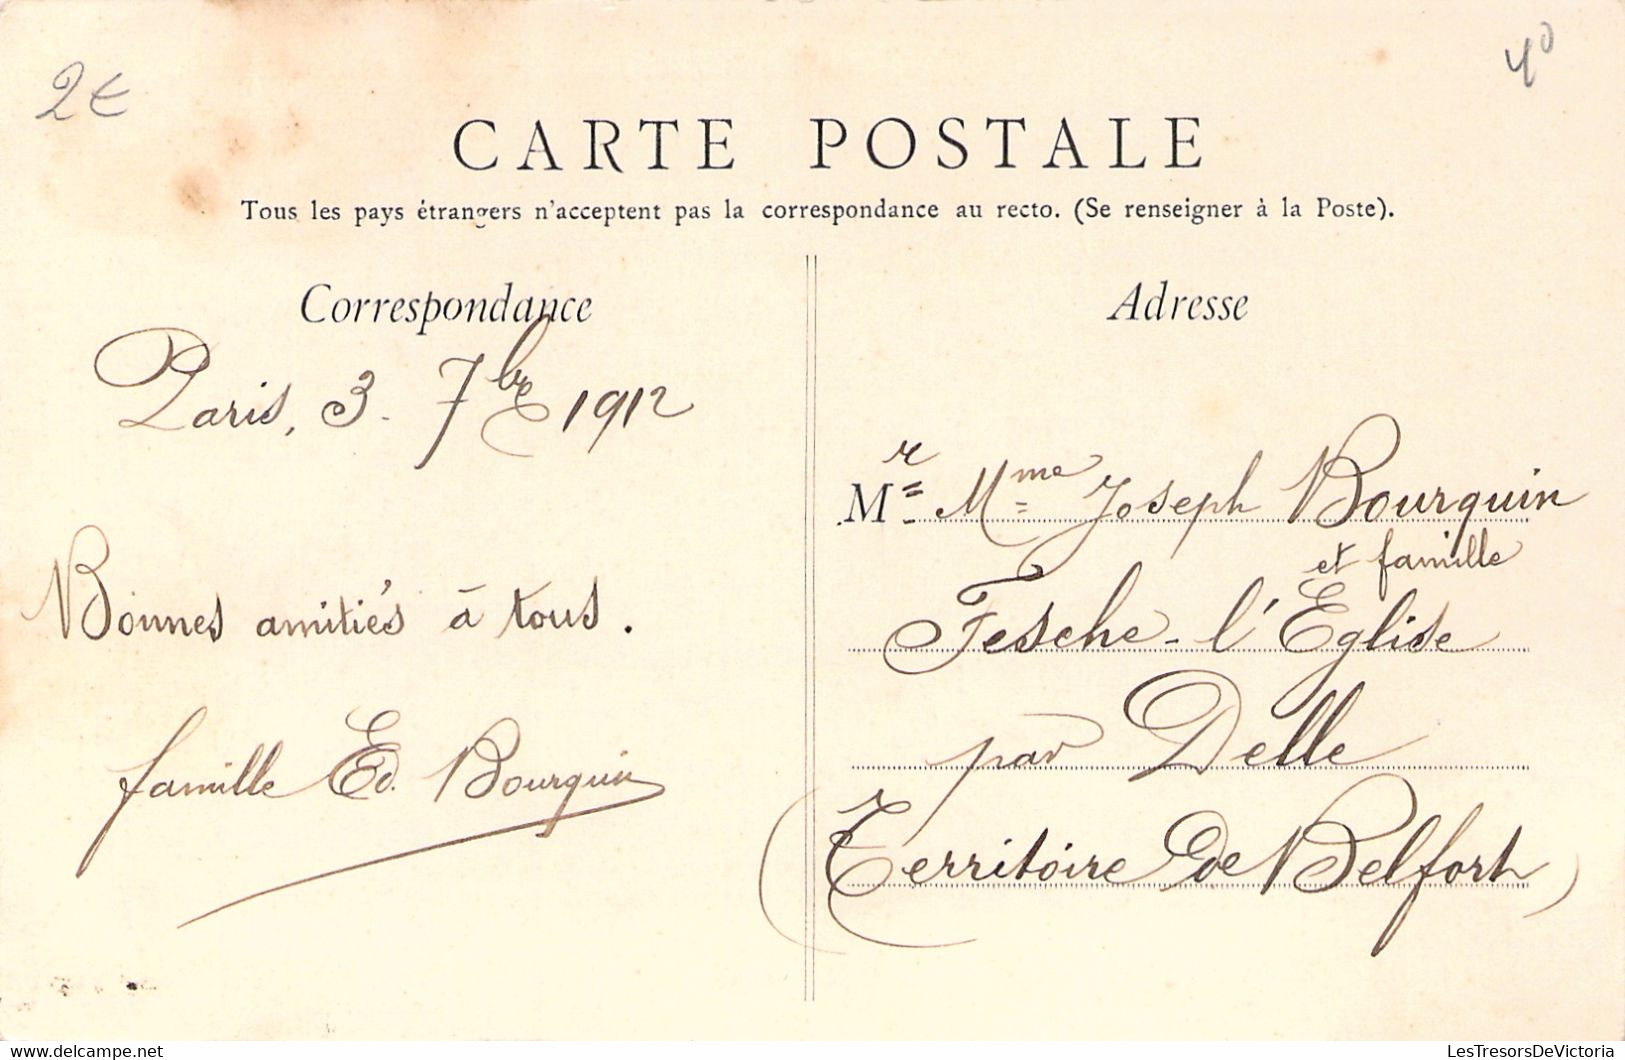 2€
40
CARTE POSTALE
Tous les pays étrangers n'acceptent pas la correspondance au recto. (Se renseigner à la Poste).
Correspondance
Paris, 3. 7bre 1912
Bonnes amitiés à tous.
famille Ed. Bourquin
Adresse
Mr Mme Joseph Bourquin
et famille
Fesche-l'Église
par Delle
(Territoire de Belfort)
LesTresorsDeVictoria